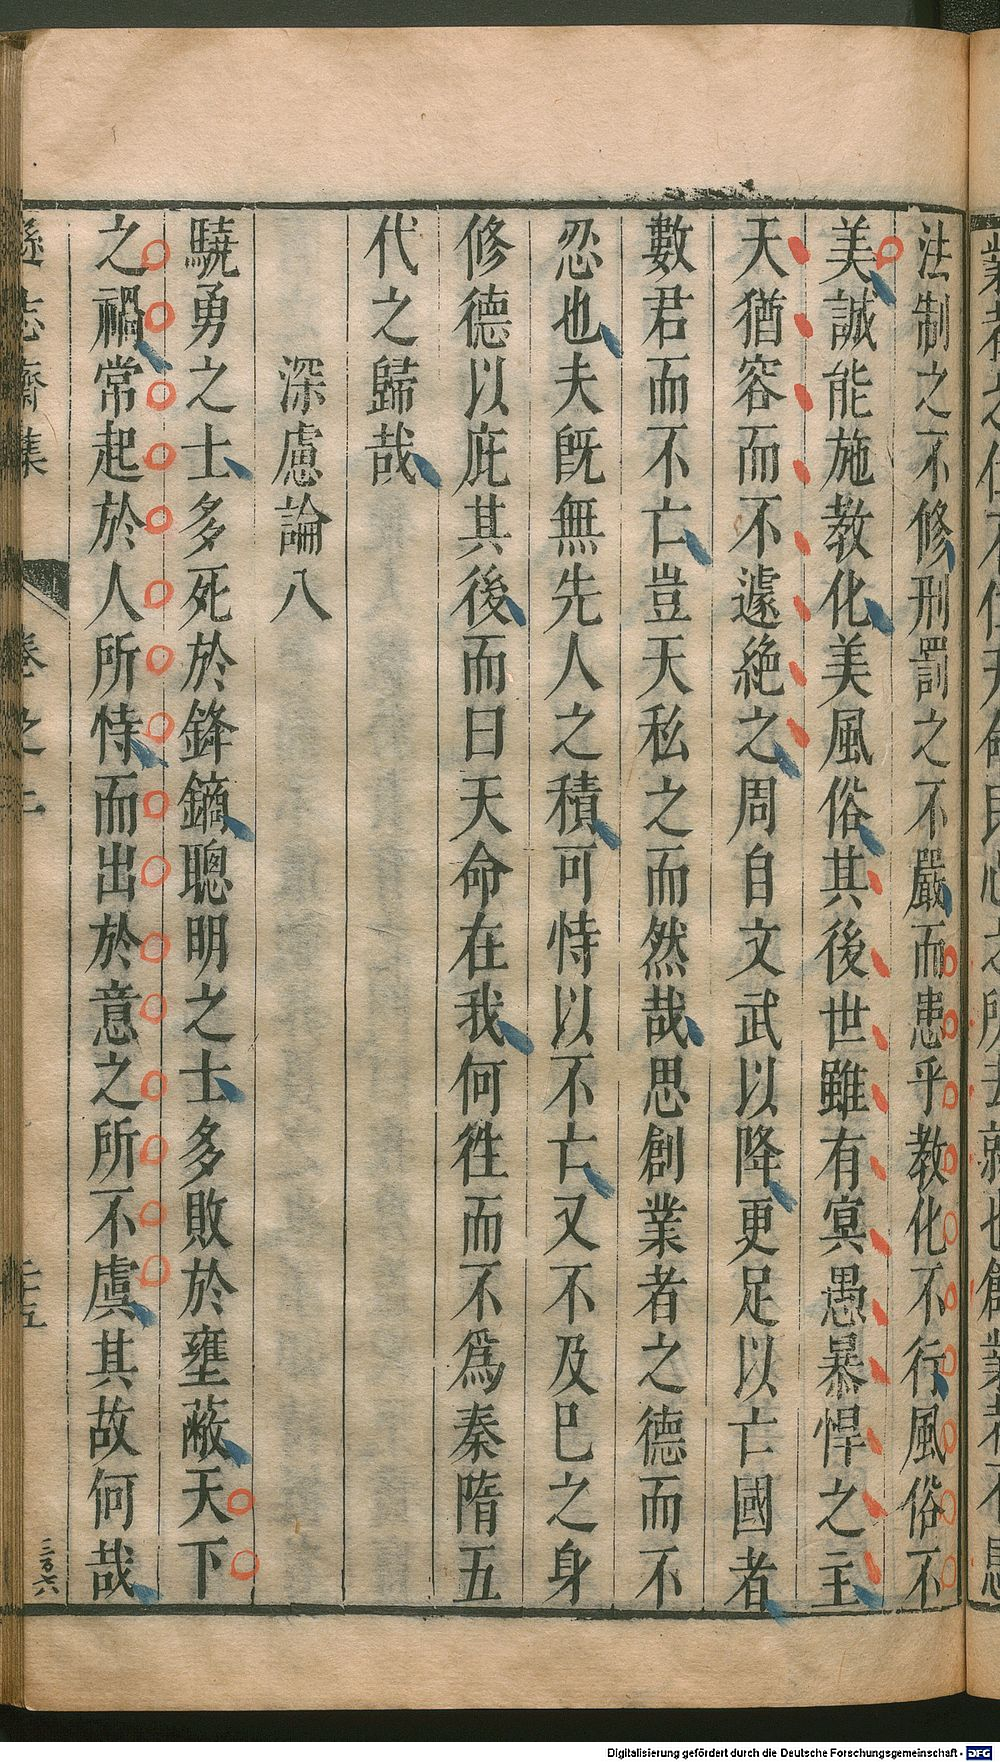 法制之不修刑罰之不嚴而患乎教化不行風俗不
美誠能施教化美風俗其後世雖有冥愚暴悍之主
天猶容而不遽絶之周自文武以降更足以亡國者
數君而不亡豈天私之而然哉思創業者之德而不
忍也夫旣無先人之積可恃以不亡又不及巳之身
修德以庇其後而曰天命在我何徃而不爲秦隋五
代之歸哉
深慮論八
驍勇之士多死於鋒鏑聰明之士多敗於壅蔽天下
之禍常起於人所恃而出於意之所不虞其故何哉
遜志齋集
卷之二
三百六
Digitalisierung gefördert durch die Deutsche Forschungsgemeinschaft - DFG